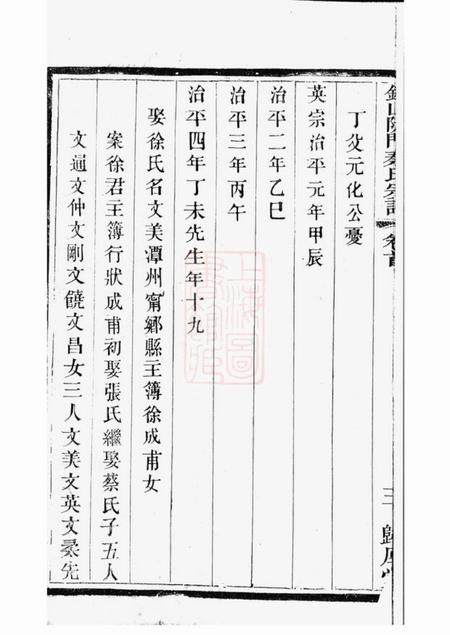 丁父元化公憂
英宗治平元年甲辰
治平二年乙巳
治平三年丙午
治平四年丁未先生年十九
娶徐氏名文美潭州甯鄉縣主簿徐成甫女
案徐君主簿行狀成甫初娶張氏繼娶蔡氏子五人
文通文仲文剛文饒文昌女三人文美文英文柔先
三